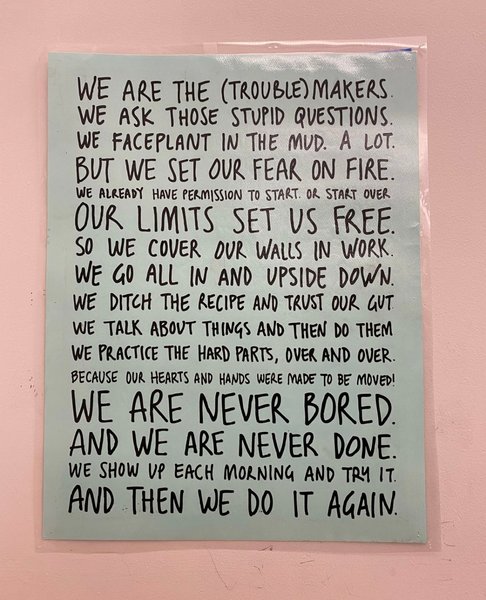 WE ARE THE (TROUBLE)MAKERS.
WE ASK THOSE STUPID QUESTIONS.
WE FACEPLANT IN THE MUD. A LOT.
BUT WE SET OUR FEAR ON FIRE.
WE ALREADY HAVE PERMISSION TO START. OR START OVER
OUR LIMITS SET US FREE.
SO WE COVER OUR WALLS IN WORK.
WE GO ALL IN AND UPSIDE DOWN.
WE DITCH THE RECIPE AND TRUST OUR GUT
WE TALK ABOUT THINGS AND THEN DO THEM
WE PRACTICE THE HARD PARTS, OVER AND OVER.
BECAUSE OUR HEARTS AND HANDS WERE MADE TO BE MOVED!
WE ARE NEVER BORED.
AND WE ARE NEVER DONE.
WE SHOW UP EACH MORNING AND TRY IT.
AND THEN WE DO IT AGAIN.